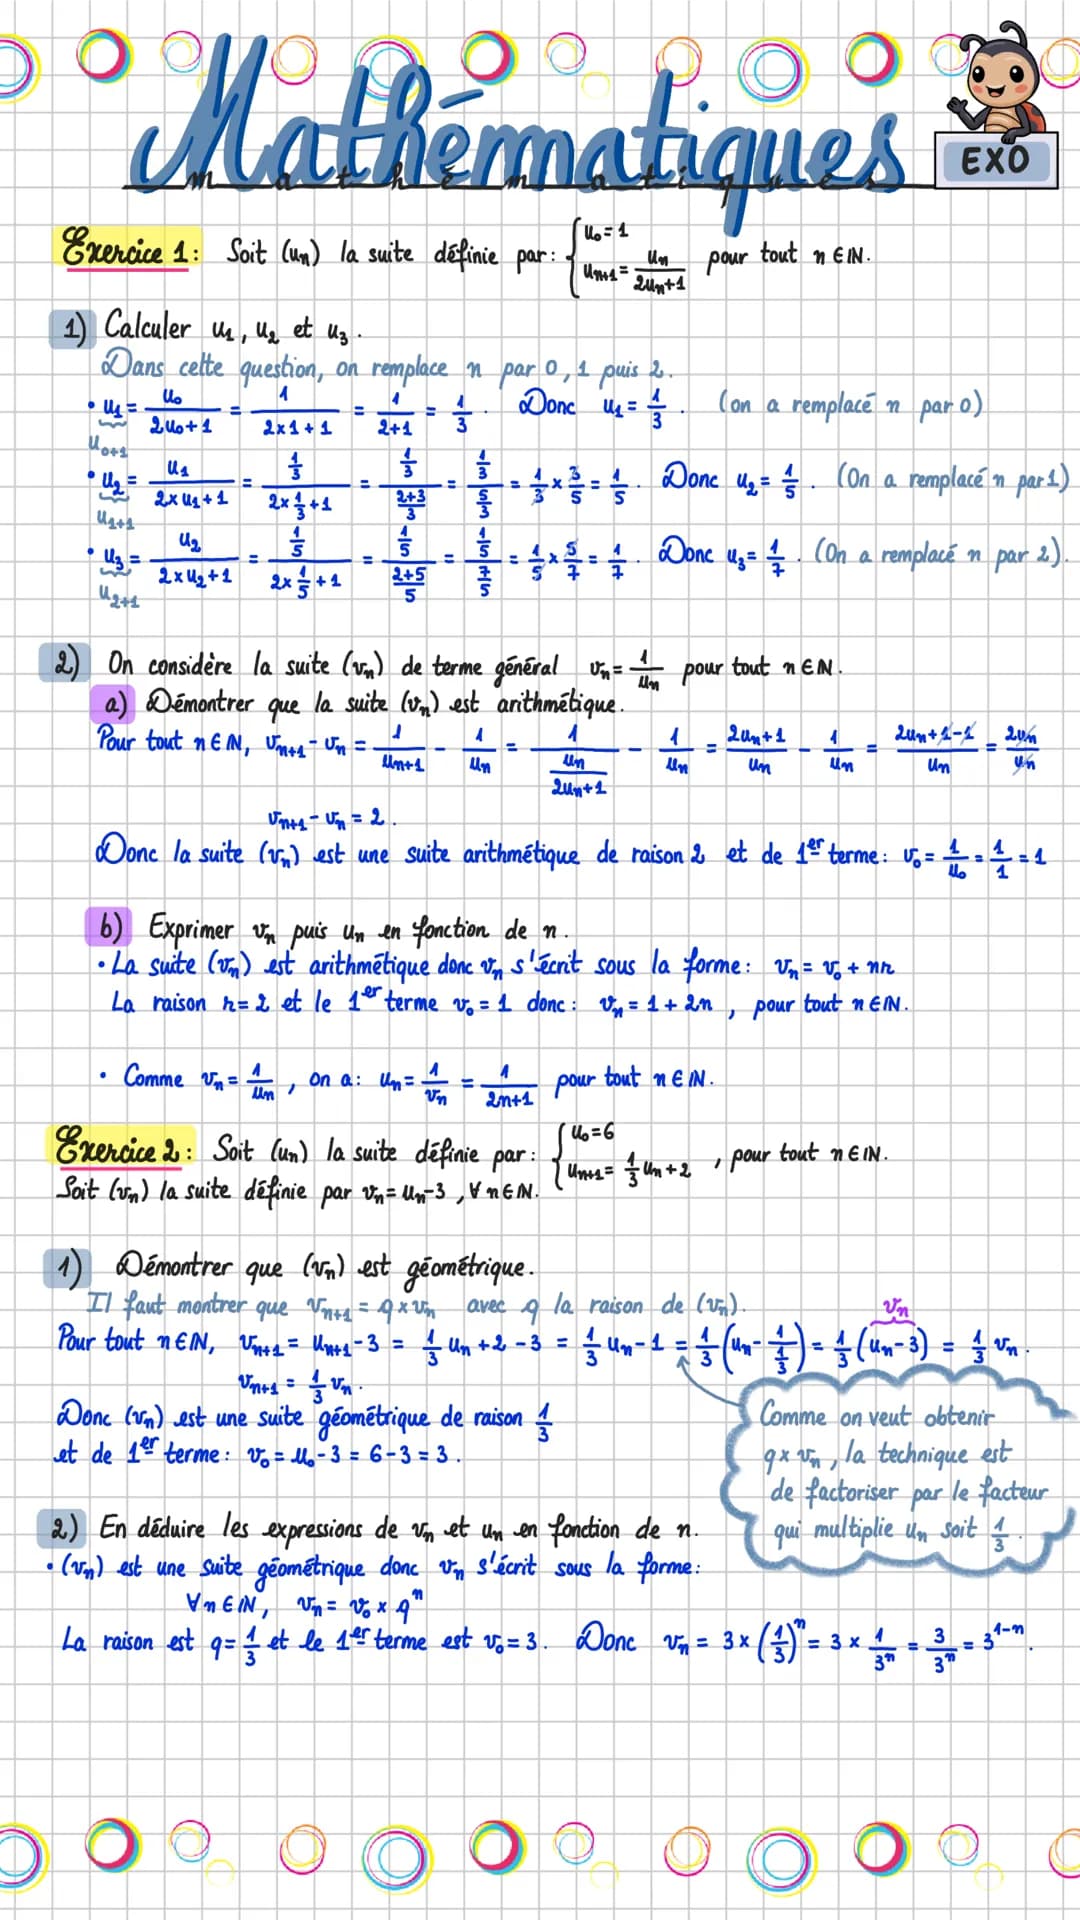 Mathématiques
mathématiques
EXO
Exercice 1 : Soit (un) la suite définie par : { u0 = 1 ; un+1 = un/(2un+1) pour tout n ∈ ℕ.
1) Calculer u1, u2 et u3.
Dans cette question, on remplace n par 0, 1 puis 2.
• u1 = u0/(2u0+1) = 1/(2x1+1) = 1/(2+1) = 1/3. Donc u1 = 1/3. (on a remplacé n par 0)
u0+1
• u2 = u1/(2xu1+1) = (1/3)/(2x1/3+1) = (1/3)/((2+3)/3) = (1/3)/(5/3) = 1/3 x 3/5 = 1/5. Donc u2 = 1/5. (On a remplacé n par 1)
u1+1
• u3 = u2/(2xu2+1) = (1/5)/(2x1/5+1) = (1/5)/((2+5)/5) = (1/5)/(7/5) = 1/5 x 5/7 = 1/7. Donc u3 = 1/7. (On a remplacé n par 2).
u2+1
2) On considère la suite (vn) de terme général vn = 1/un pour tout n ∈ ℕ.
a) Démontrer que la suite (vn) est arithmétique.
Pour tout n ∈ ℕ, vn+1 - vn = 1/un+1 - 1/un = 1/(un/(2un+1)) - 1/un = (2un+1)/un - 1/un = (2un+1-1)/un = 2un/un
vn+1 - vn = 2.
Donc la suite (vn) est une suite arithmétique de raison 2 et de 1er terme : v0 = 1/u0 = 1/1 = 1
b) Exprimer vn puis un en fonction de n.
• La suite (vn) est arithmétique donc vn s'écrit sous la forme : vn = v0 + nr
La raison r = 2 et le 1er terme v0 = 1 donc : vn = 1 + 2n, pour tout n ∈ ℕ.
• Comme vn = 1/un, on a : un = 1/vn = 1/(2n+1) pour tout n ∈ ℕ.
Exercice 2 : Soit (un) la suite définie par : { u0 = 6 ; un+1 = 1/3 un + 2, pour tout n ∈ ℕ.
Soit (vn) la suite définie par vn = un-3, ∀ n ∈ ℕ.
1) Démontrer que (vn) est géométrique.
Il faut montrer que vn+1 = q x vn avec q la raison de (vn).
vn
Pour tout n ∈ ℕ, vn+1 = un+1 - 3 = 1/3 un + 2 - 3 = 1/3 un - 1 = 1/3 (un - 1/(1/3)) = 1/3 (un - 3) = 1/3 vn.
vn+1 = 1/3 vn.
Donc (vn) est une suite géométrique de raison 1/3
et de 1er terme : v0 = u0 - 3 = 6 - 3 = 3.
Comme on veut obtenir
q x vn, la technique est
de factoriser par le facteur
qui multiplie un soit 1/3.
2) En déduire les expressions de vn et un en fonction de n.
• (vn) est une suite géométrique donc vn s'écrit sous la forme :
∀ n ∈ ℕ, vn = v0 x q^n
La raison est q = 1/3 et le 1er terme est v0 = 3. Donc vn = 3 x (1/3)^n = 3 x 1/3^n = 3/3^n = 3^(1-n).